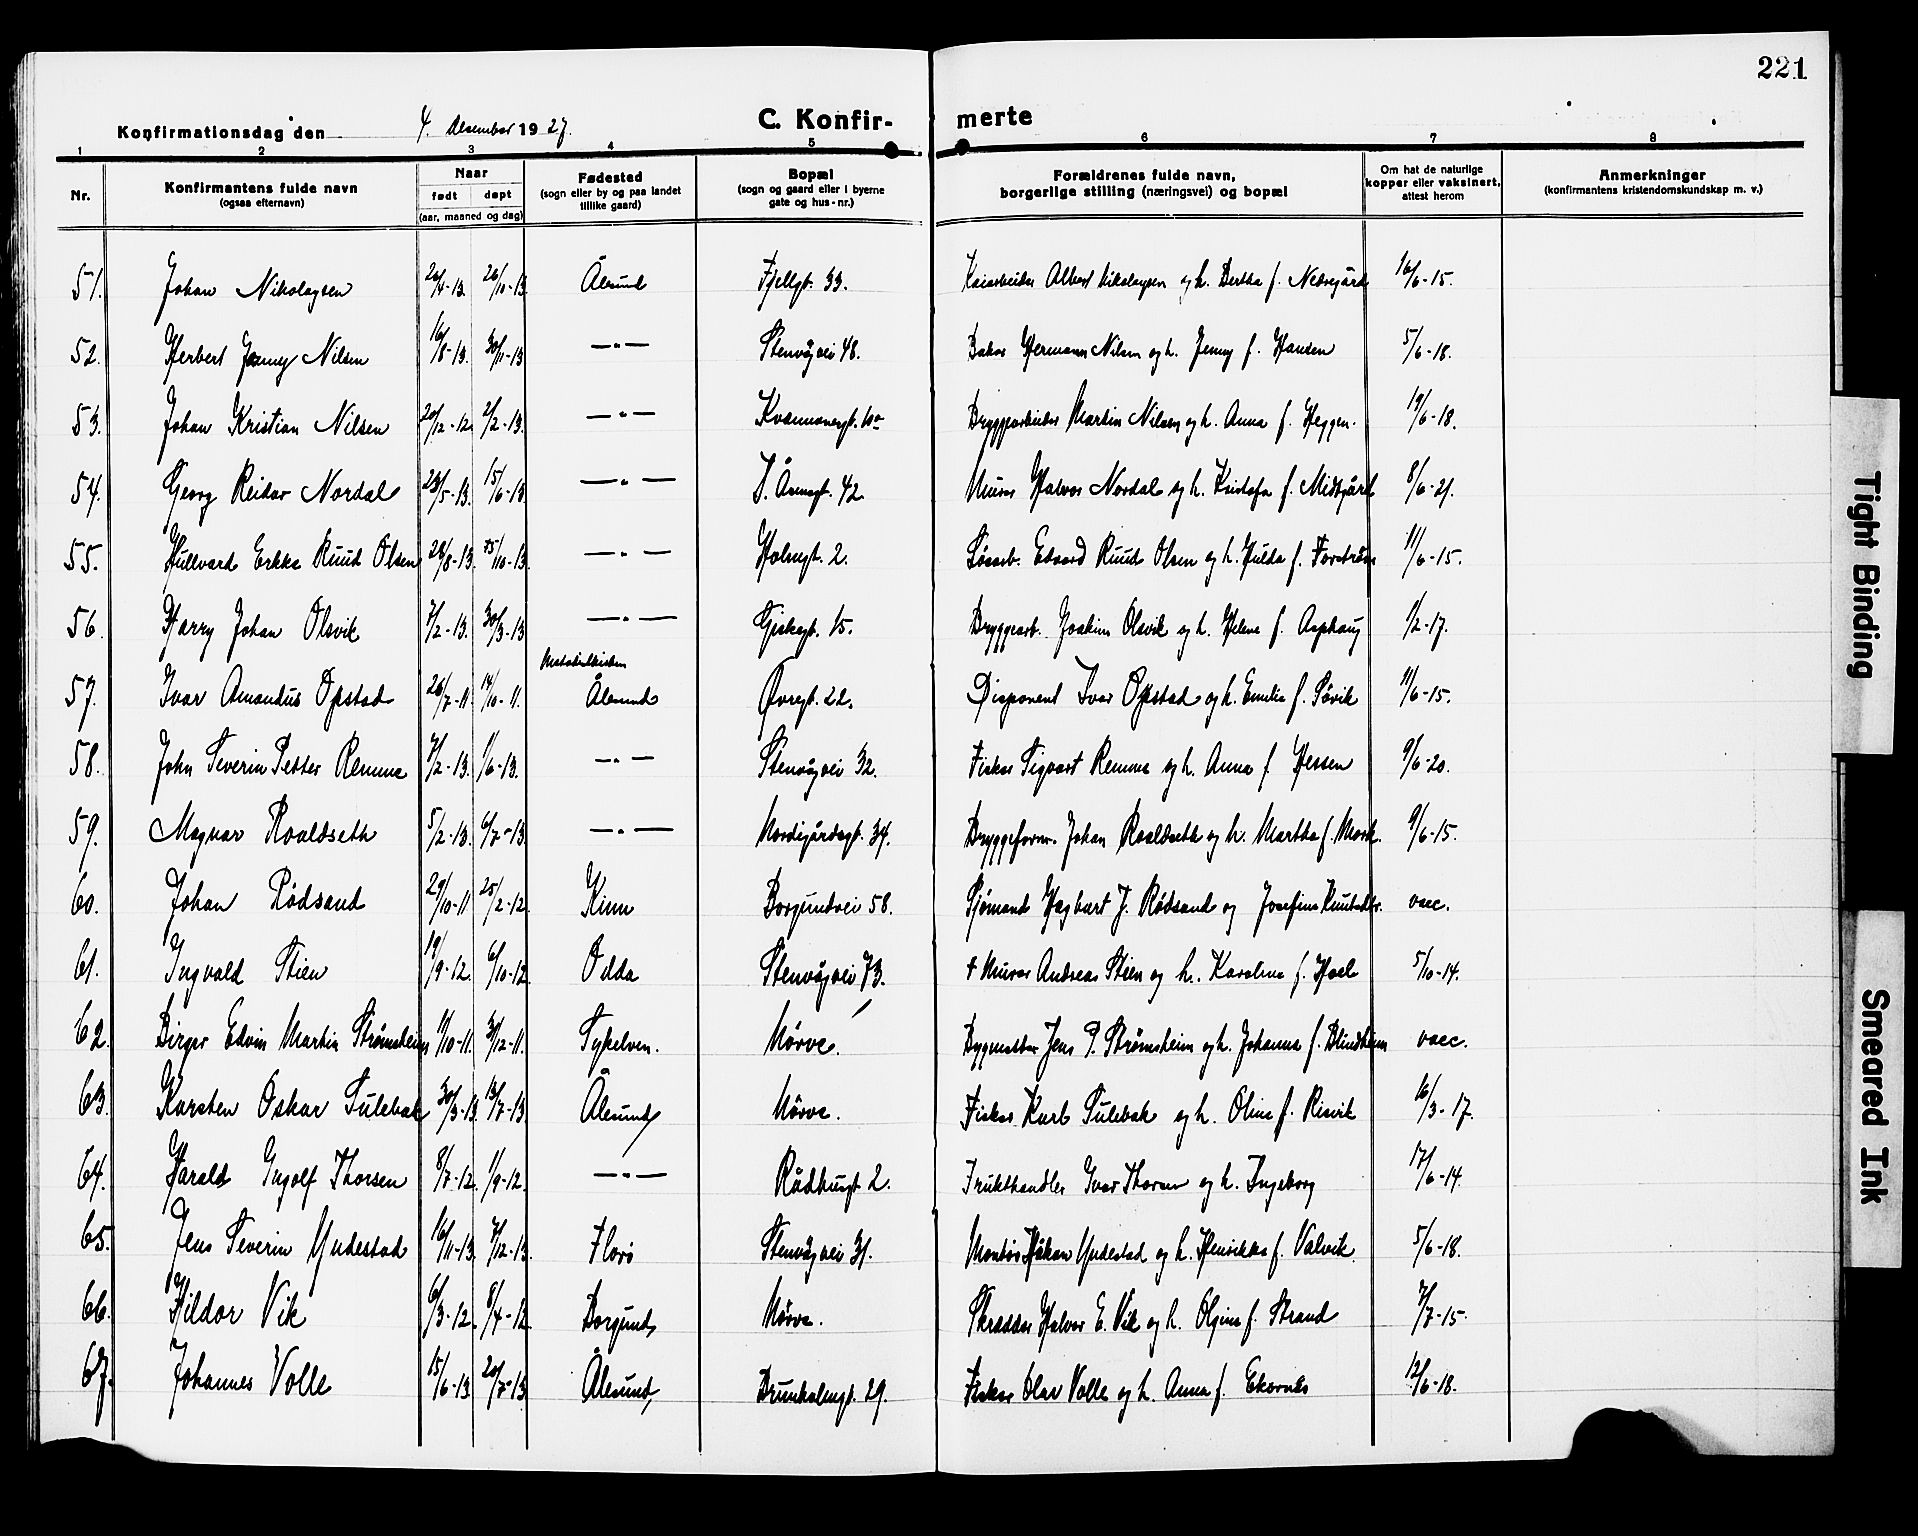 221
Konfirmationsdag den 4. Desember 1927.
C. Konfirmerte
1 2 3 4 5 6 7 8
Nr.
Konfirmantens fulde navn
(ogsaa efternavn)
Naar
født døpt
(aar, maaned og dag)
Fødested
(sogn eller by og paa landet
tillike gaard)
Bopæl
(sogn og gaard eller i byerne
gate og hus-nr.)
Forældrenes fulde navn,
borgerlige stilling (næringsvei) og bopæl
Om hat de naturlige
kopper eller vaksinert,
attest herom
Anmerkninger
(konfirmantens kristendomskundskap m. v.)
51. Johan Nikolaysen 26/10-13 Ålesund Fjellgt. 33. Kaiarbeider Albert Nikolaysen og h. Bertha f. Nedregård 16/6-15.
52. Herbert Nilsen 16/8-13. 30/11-13 —„— Stenvågvei 48. Baker Hermann Nilsen og h. Jenny f. Hansen 5/6-18.
53. Johan Kristian Nilsen 20/12-12. 2/2-13. —„— Bryggearbeider Martin Nilsen og h. Anna f. Heggen. 19/6-18.
54. Georg Reidar Nordal 23/5-13. 15/6-13 —„— 42. Murer Halvor Nordal og h. f. Midtgård 8/6-21.
55. Ruud Olsen 28/8-13. —„— Holmgt. 2. Edvard Ruud Olsen og h. Hulda f. 11/6-15.
56. Harry Johan Olsvik 7/2-13. 30/3-13 —„— Giskegt. 15. Bryggearb. Joakim Olsvik og h. Helene f. Asphaug 1/2-17.
57. Ivar Amandus Opstad 26/7-11. 14/10-11. Ålesund Øvregt. 22. Disponent Ivar Opstad og h. Emilie f. Søvik 11/6-15.
58. John Severin Petter Remme 7/2-13. 1/6-13. —„— Stenvågvei 32. Fisker Sigvart Remme og h. Anna f. Hessen 9/6-20.
59. Magnar Roaldseth 5/2-13. 6/7-13. —„— 34. Johan Roaldseth og h. Martha f. Mork. 9/6-15.
60. Johan Rødsand 29/10-11 25/2-12. Kinn Borgundvei 58. Sjømand Hagbart J. Rødsand og Josefine Knutsdtr. vacc.
61. Ingvald Stien 19/9-12. 6/10-12 Odda Stenvågvei 73. † Murer Andreas Stien og h. Karoline f. Hoel 5/10-14.
62. Birger Edvin Martin Strømsheim 11/10-11. 31/12-11. Sykelven. Nørve. Jens P. Strømsheim og h. Johanna f. Blindheim vacc.
63. Karsten Oskar Sulebak 30/3-13. 13/7-13. Ålesund Nørve. Fisker Karl Sulebak og h. Oline f. Risvik 16/3-17.
64. Harald Ingolf Thorsen 8/7-12. 1/9-12. —„— Rådhusgt. 2. Frukthandler Ivar Thorsen og h. Ingeborg 17/6-14.
65. Jens Severin Yndestad 16/11-13. 7/12-13. Florø Stenvågvei 31. Montør Håkon Yndestad og h. Henrikke f. Valvik. 5/6-18.
66. Hildor Vik 6/3-12. 8/4-12 Borgund Nørve. Skredder Halvor E. Vik og h. Olgine f. Strand 7/7-15.
67. Johannes Volle 15/6-13. 20/7-13. Ålesund Brunholmgt. 29. Fisker Olav Volle og h. Anna f. Ekornes 12/6-18.
Tight Binding
Smeared Ink